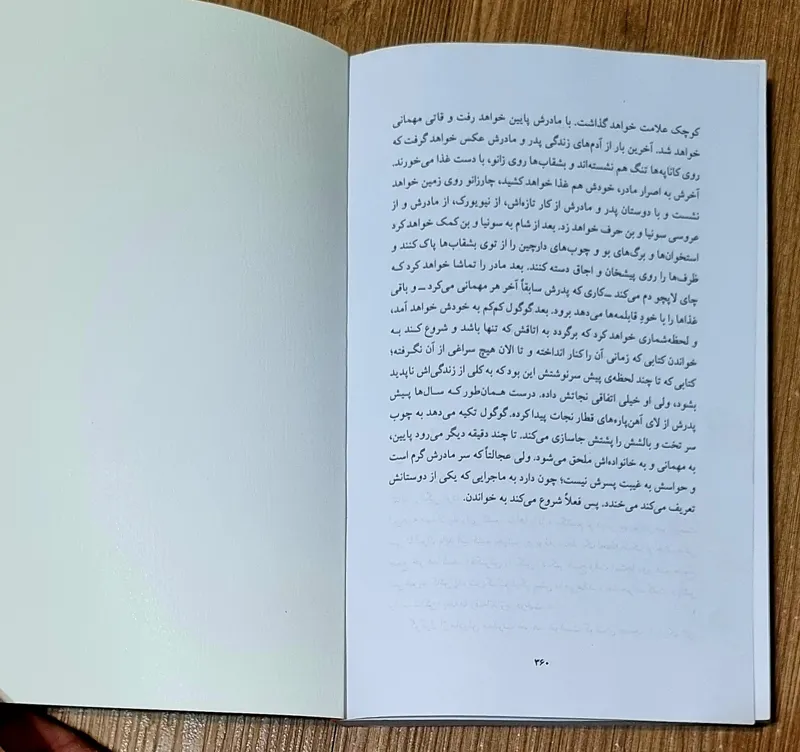 کوچک علامت خواهد گذاشت. با مادرش پایین خواهد رفت و قاتی مهمانی
خواهد شد. آخرین بار از آدم‌های زندگی پدر و مادرش عکس خواهد گرفت که
روی کاناپه‌ها تنگ هم نشسته‌اند و بشقاب‌ها روی زانو، با دست غذا می‌خورند.
آخرش به اصرار مادر، خودش هم غذا خواهد کشید، چارزانو روی زمین خواهد
نشست و با دوستان پدر و مادرش از کار تازه‌اش، از نیویورک، از مادرش و از
عروسی سونیا و بن حرف خواهد زد. بعد از شام به سونیا و بن کمک خواهد کرد
استخوان‌ها و برگ‌های بو و چوب‌های دارچین را از توی بشقاب‌ها پاک کنند و
ظرف‌ها را روی پیشخان و اجاق دسته کنند. بعد مادر را تماشا خواهد کرد که
چای لاپچو دم می‌کند ـ کاری که پدرش سابقاً آخر هر مهمانی می‌کرد ـ و باقی
غذاها را با خودِ قابلمه‌ها می‌دهد برود. بعد گوگول کم‌کم به خودش خواهد آمد،
و لحظه‌شماری خواهد کرد که برگردد به اتاقش که تنها باشد و شروع کند به
خواندن کتابی که زمانی آن را کنار انداخته و تا الان هیچ سراغی از آن نگرفته؛
کتابی که تا چند لحظه‌ی پیش سرنوشتش این بود که به کلی از زندگی‌اش ناپدید
بشود، ولی او خیلی اتفاقی نجاتش داده. درست همان‌طور که سال‌ها پیش
پدرش از لای آهن‌پاره‌های قطار نجات پیدا کرده. گوگول تکیه می‌دهد به چوب
سر تخت و بالشش را پشتش جاسازی می‌کند. تا چند دقیقه دیگر می‌رود پایین،
به مهمانی و به خانواده‌اش ملحق می‌شود. ولی عجالتاً که سر مادرش گرم است
و حواسش به غیبت پسرش نیست؛ چون دارد به ماجرایی که یکی از دوستانش
تعریف می‌کند می‌خندد. پس فعلاً شروع می‌کند به خواندن.
۳۶۰